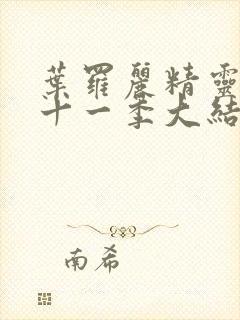 葉羅麗精靈
十一季大結
南希